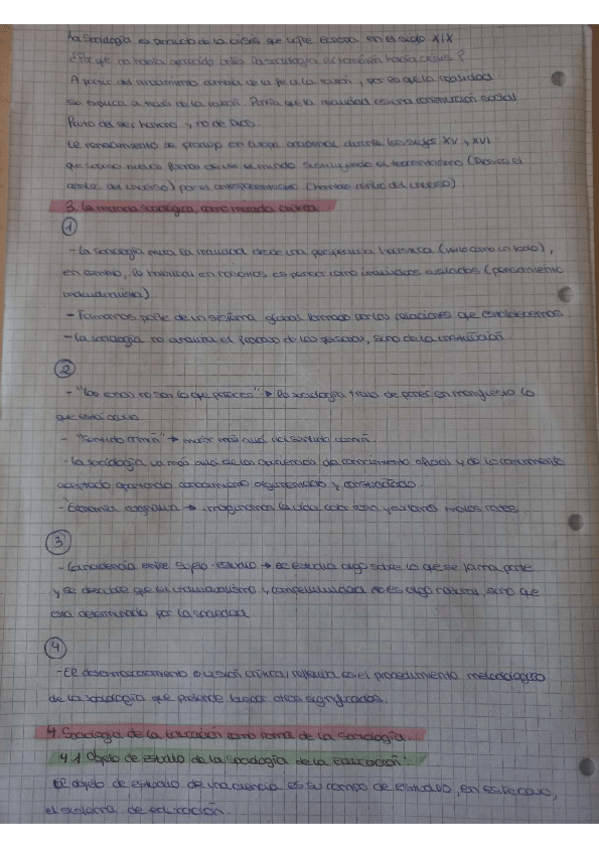 La Sociología es producto de la crisis que sufre Europa en el siglo XIX.
¿Por qué no había aparecido antes la sociología si también había crisis?
A partir del humanismo cambia de la fe a la razón, por eso que la realidad
se explica a través de la razón. Decía que la realidad es una construcción social
fruto del ser humano y no de Dios.
El renacimiento se produjo en Europa occidental durante los siglos XV y XVI
que supuso nueva forma de ver el mundo sustituyendo el teocentrismo (Dios es el
centro del universo) por el antropocentrismo (hombre centro del universo).
3. La mirada sociológica, como mirada crítica.
1
- La sociología mira la realidad desde una perspectiva holística (verlo como un todo),
en cambio, lo habitual en nosotros es pensar como individuos aislados (pensamiento
individualista)
- Formamos parte de un sistema global formado por las relaciones que establecemos.
- La sociología no analiza el fracaso de las personas, sino de la institución
2
- "Las cosas no son lo que parecen" → La sociología trata de poner en manifiesto lo
que está oculto.
- "Sentido común" → mirar más allá del sentido común.
- La sociología va más allá de las apariencias del conocimiento oficial y de lo comúnmente
aceptado aportando conocimiento argumentado y contrastado.
- Economía →
3
- Coincidencia entre sujeto - estudio → se estudia algo sobre lo que se forma parte
y se descubre que el individualismo y competitividad no es algo natural, sino que
está determinado por la sociedad.
4
- El desenmascaramiento o visión crítica / reflexiva es el procedimiento metodológico
de la sociología que pretende buscar otros significados.
4. Sociología de la Educación como rama de la Sociología.
4.1 Objeto de estudio de la Sociología de la Educación.
El objeto de estudio de una ciencia es su campo de estudio, en este caso,
el sistema de educación.